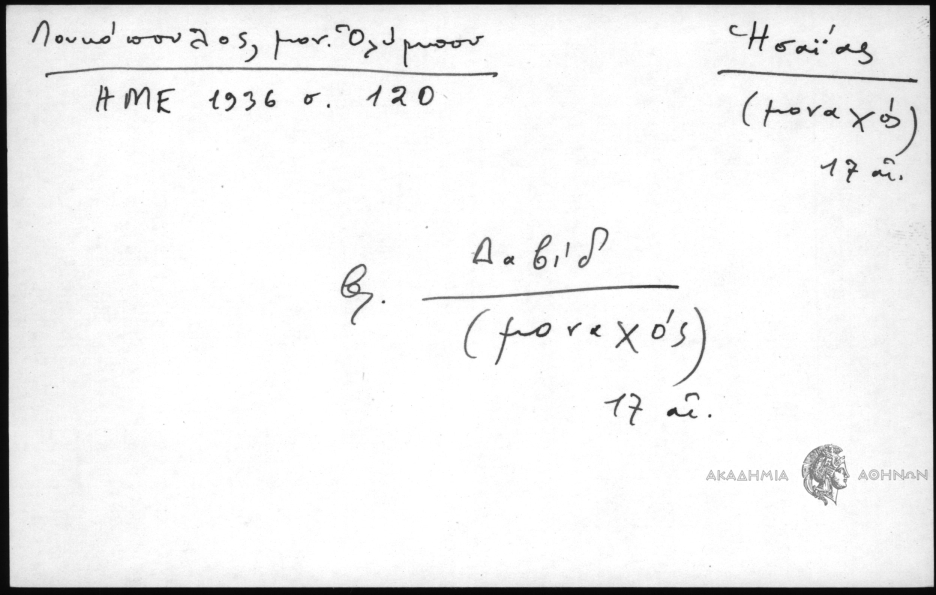 Λουκόπουλος, μον. Ὀλύμπου
ΗΜΕ 1936 σ. 120
Ἠσαΐας
(μοναχός)
17 αἰ.
βλ. Δαβίδ
(μοναχός)
17 αἰ.
ΑΚΑΔΗΜΙΑ ΑΘΗΝΩΝ